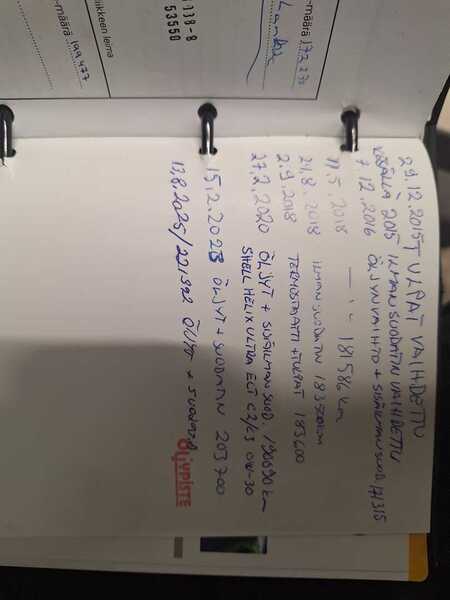 -määrä 177 271
-määrä 199 477
iikkeen leima
1138-8
53550
29.12.2015 TULPAT VAIHDETTU
KESÄLLÄ 2015 ILMANSUODATIN VAIHDETTU
7.12.2016 ÖLJYNVAIHTO + SISÄILMANSUOD. 171315
11.5.2018 — " — 181586 km
24.8.2018 ILMANSUODATIN 183500km
2.9.2018 TERMOSTAATTI + TULPAT 183600
27.2.2020 ÖLJYT + SISÄILMANSUOD. 190090 km
SHELL HELIX ULTRA ECT C2/C3 0W-30
15.2.2023 ÖLJYT + SUODATIN 203700
13.8.2025/221322 ÖLJYT + suodatin
ÖLJYPISTE